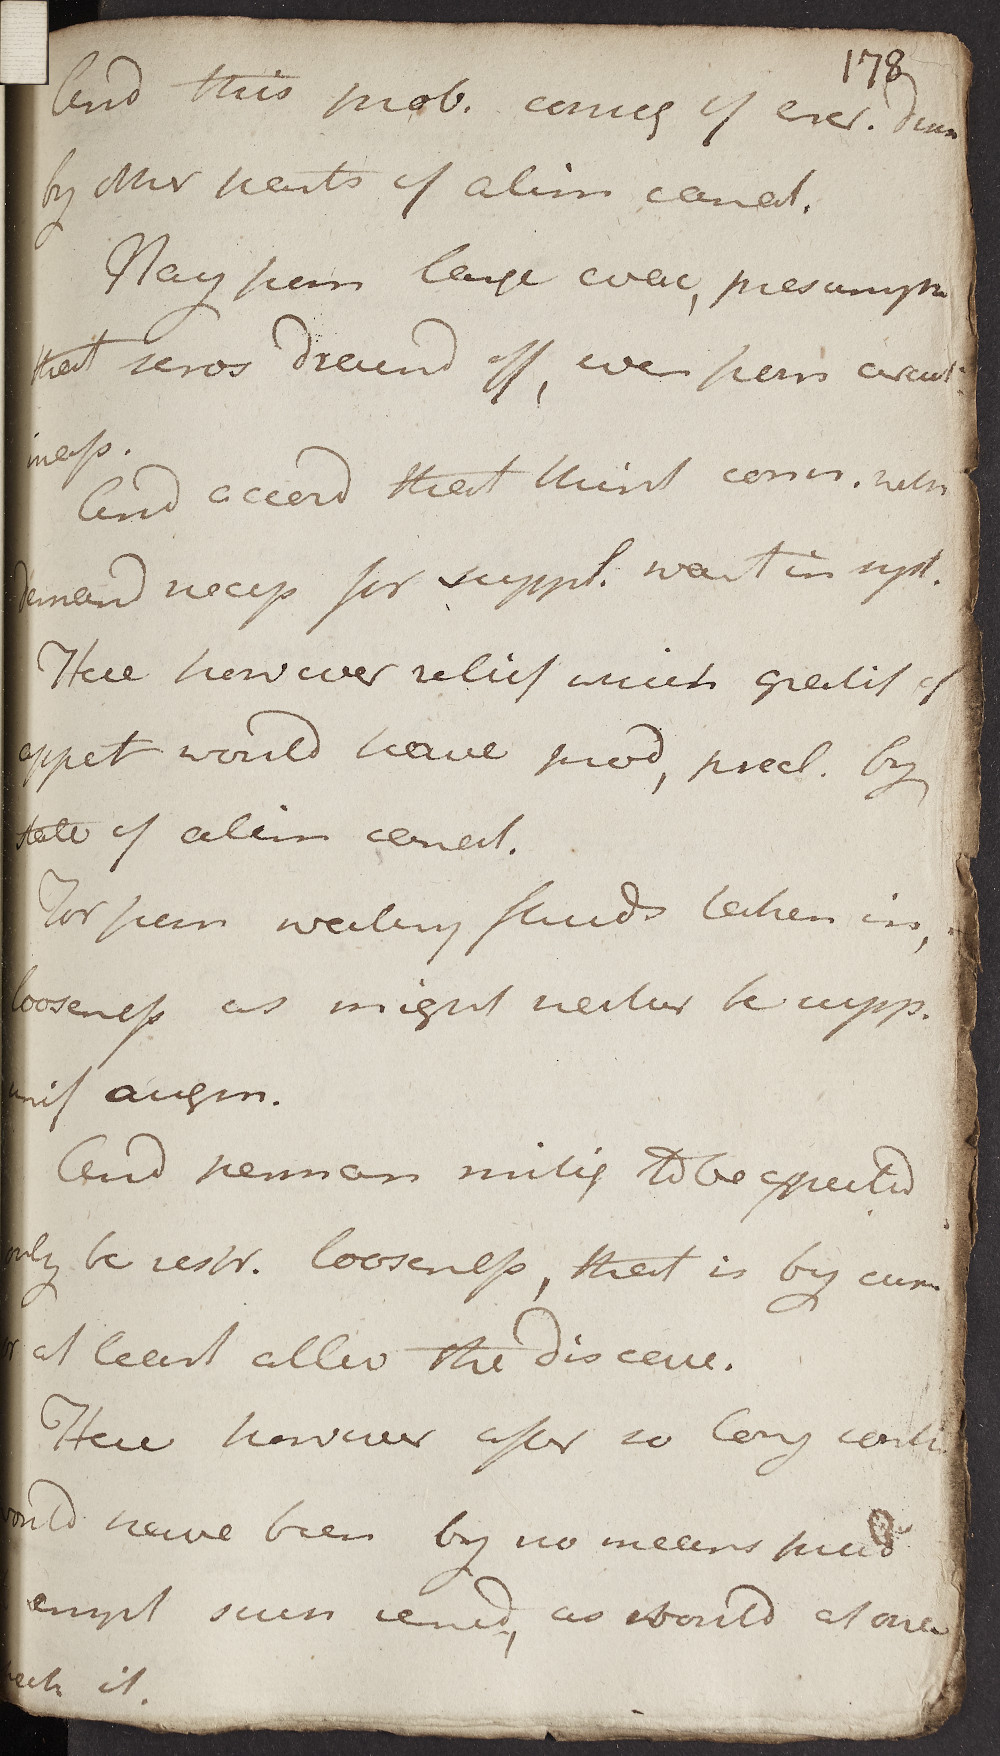 178
And this prob. comeg of exer. dim
by other parts of alim canal.
Nay from large evac, presumpn
that seros draind off, even from
iness.
And accord that thirst comm. wth
demand necess for suppl. want in syst.
Here however relief which gratif of
appet would have prod, precl. by
state of alim canal.
For from watery fluids taken in,
looseness as might neither be supp.
unif augm.
And perman mitig to be expected
only be restr. looseness, that is by cure
or at least allev the disease.
Here however after so long conti
would have been by no means prud
empl such remed, as would at once
check it.